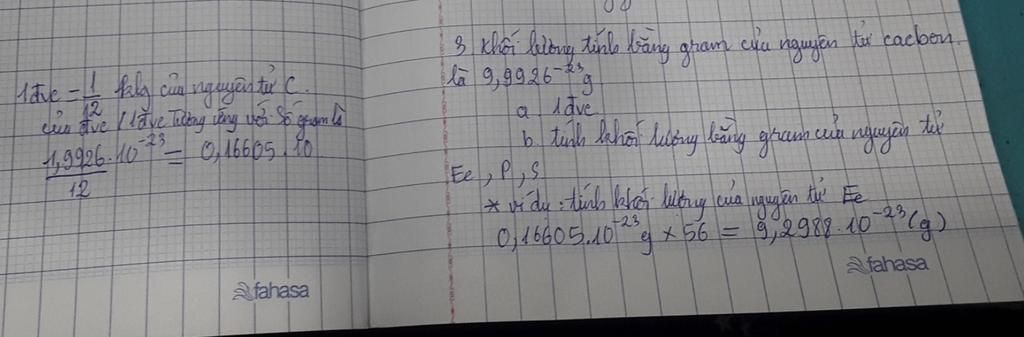 1đvc = 1/12 klg của nguyên tử C.
của đvc / 1đvc tương ứng với số gram là
1,9926.10⁻²³/12 = 0,16605.10
fahasa
3 khối lượng tính bằng gram của nguyên tử cacbon.
là 9,9926⁻²³g
a. 1đvc
b. tính khối lượng bằng gram của nguyên tử
Ee, P, S
* ví dụ: tính khối lượng của nguyên tử Ee
0,16605.10⁻²³g × 56 = 9,2988.10⁻²³(g)
fahasa